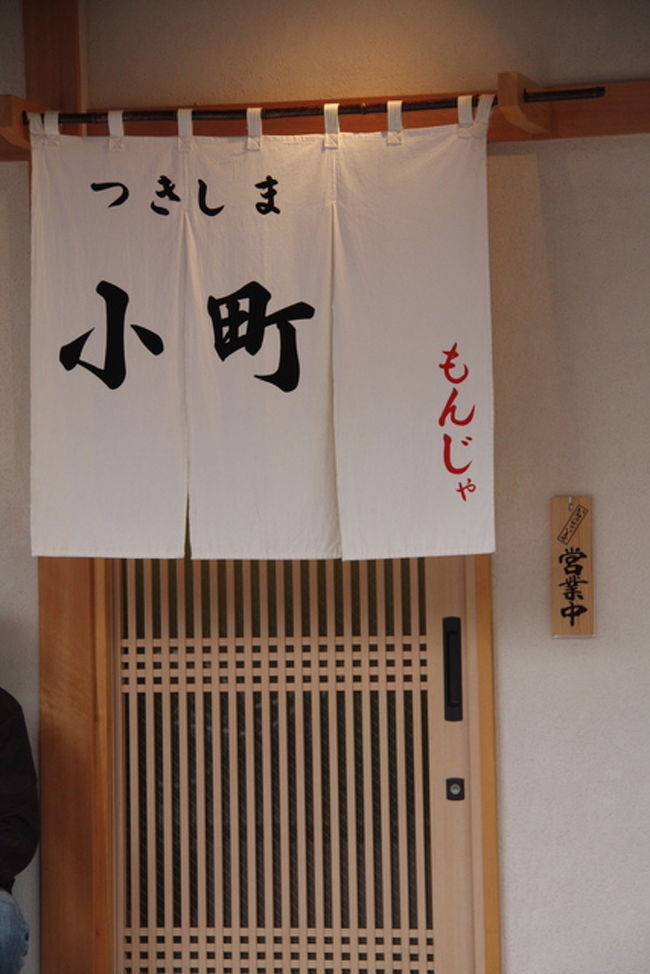 つきしま
小町
もんじゃ
営業中